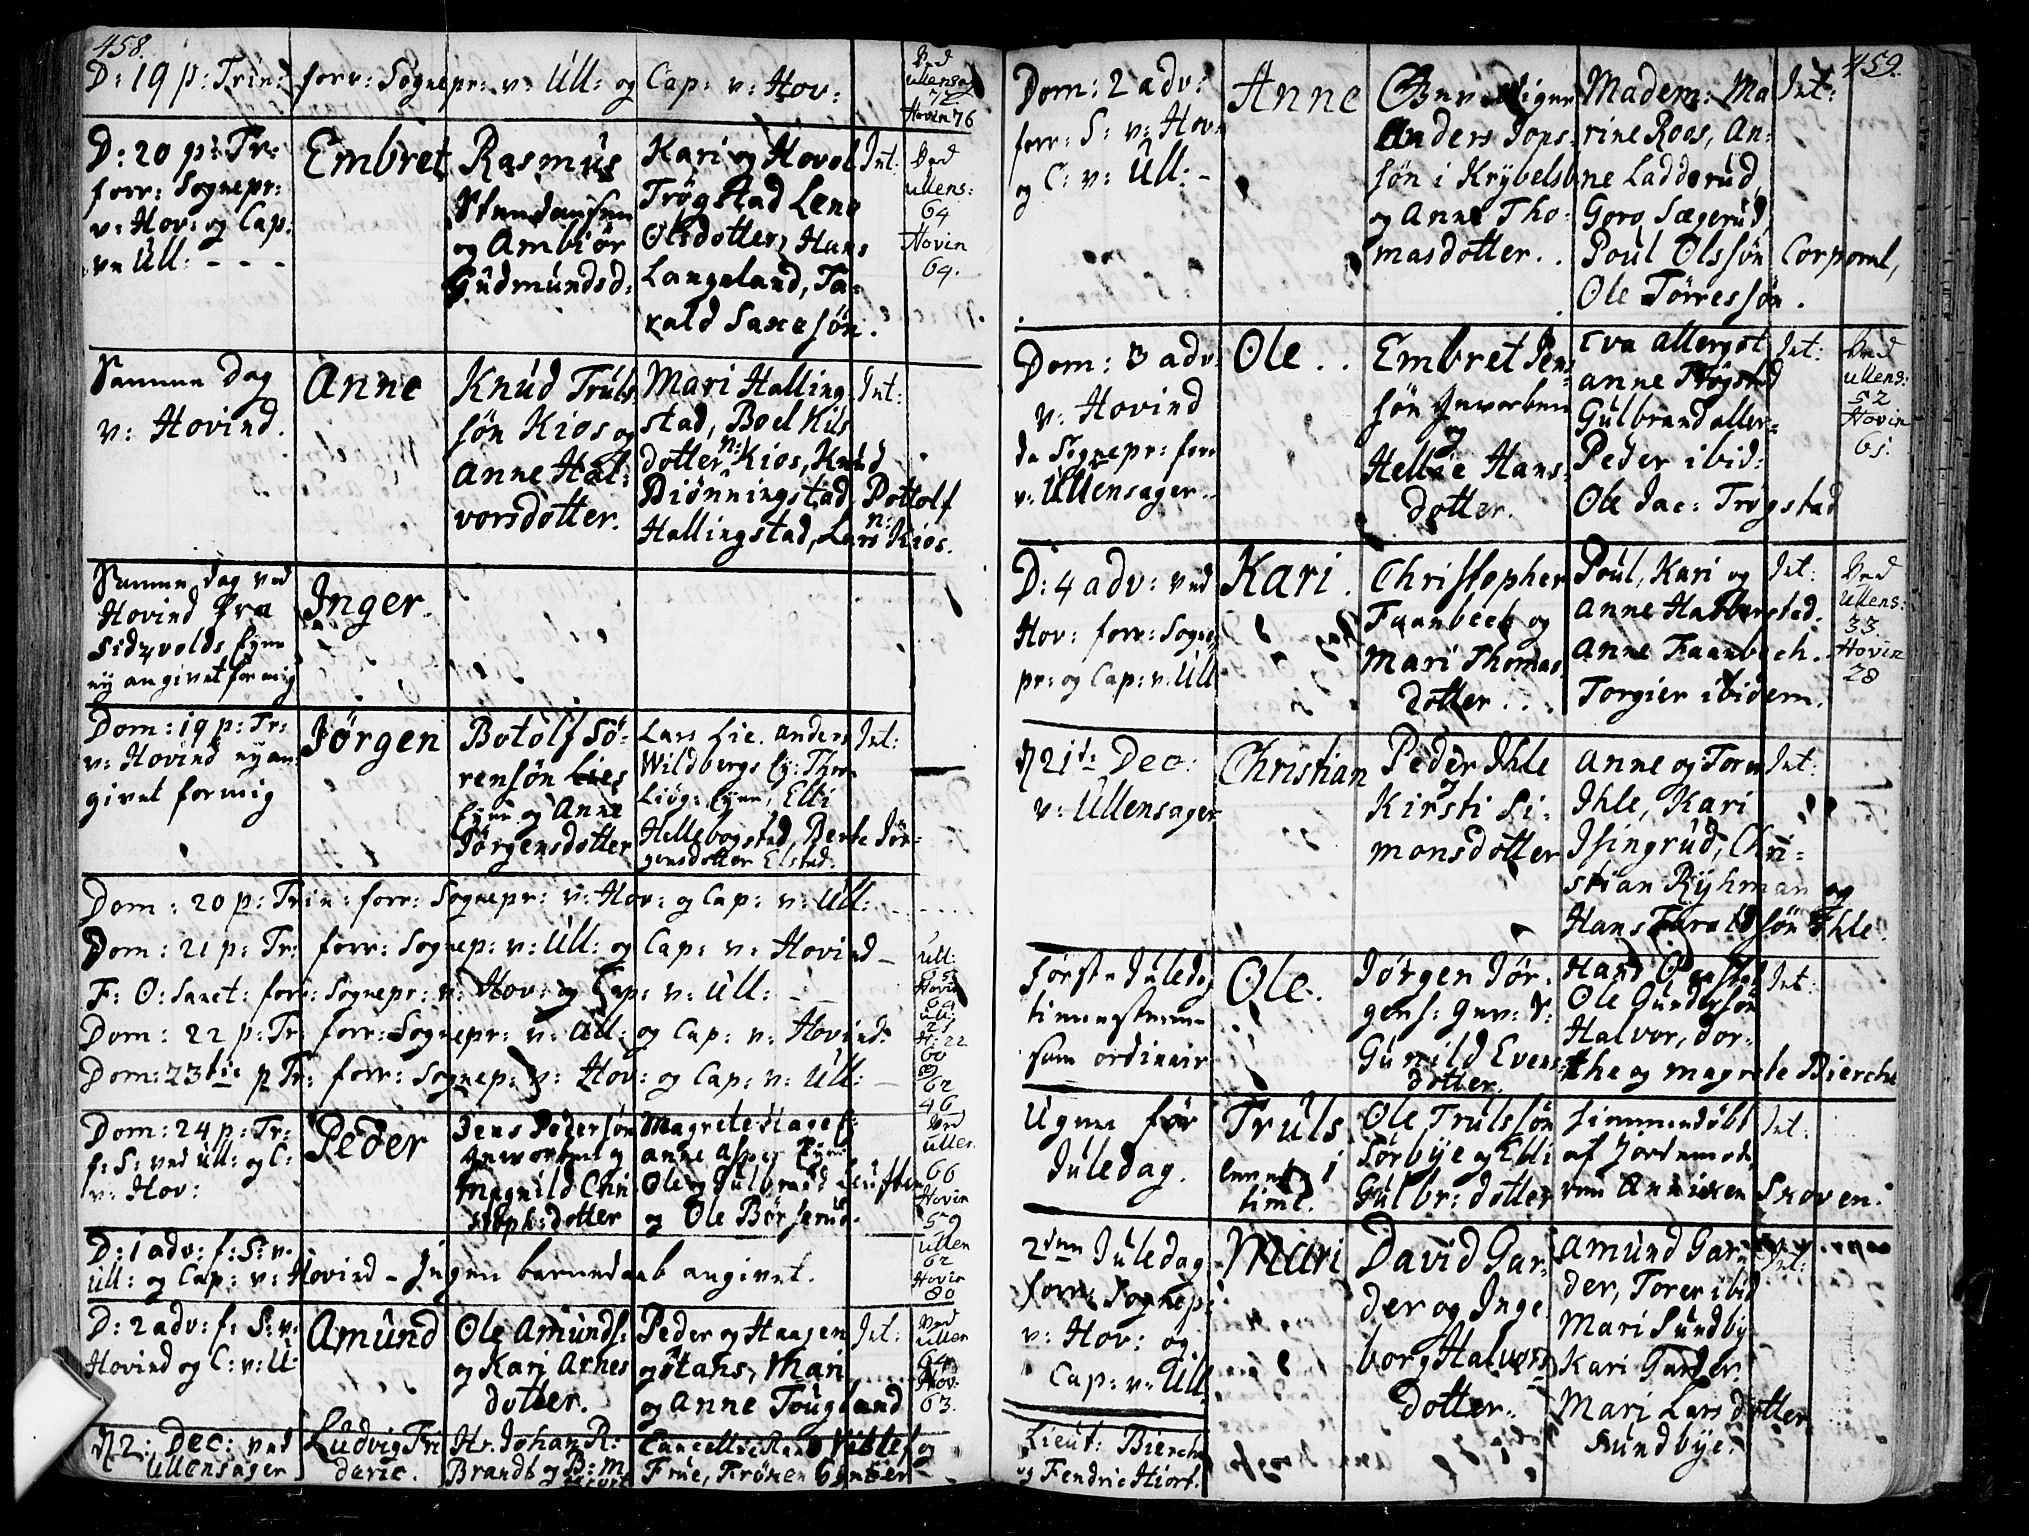 458.
D: 19 p: Trin: forr: Sognepr: v: Ull: og Cap: v: Hov:
Ved
Ullensag
72
Hovin 76
D: 20 p: Tr:
forr: Sognepr:
v: Hov: og Cap:
v: Ull: - - -
Embret
Rasmus
og Ambiör
Gudmundsd:
Kari og Hovol
Trögstad Lene
Olsdotter, Hans
Langeland, Ta-
rald Saxesön.
Int:
Ved
Ullens:
64
Hovin
64.
Samme dag
v: Hovind.
Anne
Knud Truls
sön Kios og
Anne Hal:
vorsdotter.
Mari Halling
stad, Boel Nils
dotter n: Kios, Knud
Diönningstad, Pottolf
Hallingstad, Lars n: Kios.
Int:
Samme dag ved
Hovind fra
Eidzvolds Eyen
ey angivet for mig
Inger.
Dom: 19 p: Tr:
v: Hovind ey an-
givet for mig
Jörgen
Botolf Sö-
rensön Lies
Eyen og Anne
Jörgensdotter
Lars Lie. Anders
Wildbergs Ey: Thor
Liög: Eyen, Elli
Hellebogstad, Berte Jör-
gensdotter Elstad.
Int:
Dom: 20 p: Trin: forr: Sognepr: v: Hov: og Cap: v: Ull:
Dom: 21 p: Tr: forr: Sognep: v: Ull: og Cap: v: Hovind -
F: O: Sanct: forr: Sognepr: v: Hov: og Cap: v: Ull: - -
Dom: 22 p: Tr: forr: Sognepr: v: Ull: og Cap: v: Hovind:
Dom: 23tie p Tr: forr: Sognep: v: Hov: og Cap: v: Ull: -
Ull:
H: 22
60
62
46
Dom: 24 p: Tr:
f: S: ved Ull: og C:
v: Hov:
Peder
Jens Pedersön
Inworben og
Magnild Chri
stoph: dotter
Magrete Hagef:
Anne Asper Eyen
Ole og Gulbrand
og Ole Börserud.
Ved
Ullen
66
Hovin
59
D: 1 adv: f: S: v:
Ull: og Cap: v: Hovind - Ingen barnedaab angivet.
Ullen
62
Hovin
80
D: 2 adv: f: S: v:
Hovind og C: v: U:
Amund
Ole Amunds:
og Kari Arnes
dotter.
Peder og Haagen
Mari
og Anne Tougland
Int:
Ved
Ullen
64
Hov:
63.
22: Dec: ved
Ullensager
Ludvig Fri
deric.
Hr. Johan R:
Brandt og
Vibe
og
Frue,
459.
Dom: 2 adv:
forr: S: v: Hov:
og C: v: Ull: -
Anne
Anders Jons-
sön i Krybelsb
og Anne Tho-
masdotter. .
Madem: Ma
rine Roas, An-
ne Ladderud,
Goro Sægerud,
Poul Olssön Corporal,
Ole Törressön.
Int:
Dom: 3 adv:
v: Hovind
da Sognepr: forr
v: Ullensager..
Ole . .
Embret Jens
sön Inworben
og
Hellie Hans-
dotter.
Eva Allergst
Anne Trögsted
Gulbrand Aller-
Peder ibid:
Ole Jac: Trogstad
Int:
Ved
Ullens:
52
Hovin
61.
D: 4 adv: ved
Hov: forr: Sogne
pr: og Cap: v: Ull
Kari.
Christopher
Faanbech og
Mari Thomas
dotter . . .
Poul, Kari og
Anne Haberstad.
Anne Faanbech.
Torgier ibidem.
Int:
Ved
Ullens:
33
Hovin
28
21de Dec:
v: Ullensager
Christian
Peder Ihle
og
Kirsti Si-
monsdotter
Anne og Toru
Ihle, Kari
Isingrud, Chri-
stian Ryhman og
Hans Taraldsön Ihle.
Int:
Förste Juledag
som ordinair
Ole.
Jörgen Jör-
gens:
Gunild Evens-
dotter.
Ole Gundersön
Halvor, Dor-
the og Magrete Bierche
Int:
Ugen för
Juledag.
Truls
Ole Trulssön
Sörbye og Elli
Gulbr: dotter
himmedöbt
af Jordemod.
ven Anniken Skoven.
Int:
2den Juledag
forr: Sognep:
v: Hov: og
Cap: v: Ull
Mari
David Gar-
der og Inge
borg Halvors
dotter.
Amund Gar-
der, Torer ibid
Mari Sundby
Kari Garder.
Mari Lars dotter
Sundbye.
Int:
Lieut: Bierche
og Fendric Hiort.